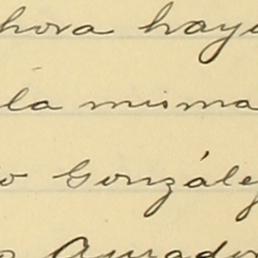 hora haya
la misma
o González
Amador